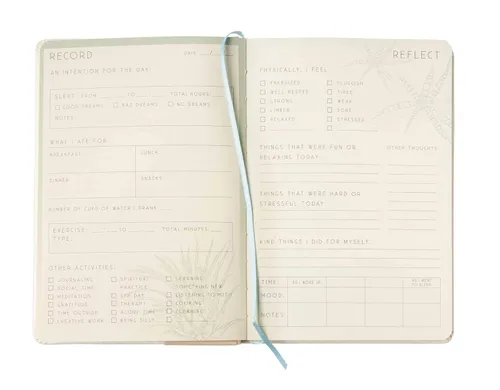 RECORD
DATE: __/__/__
AN INTENTION FOR THE DAY:
SLEPT FROM ____ TO ____ TOTAL HOURS:
GOOD DREAMS BAD DREAMS NO DREAMS
NOTES:
WHAT I ATE FOR
BREAKFAST: LUNCH:
DINNER: SNACKS:
NUMBER OF CUPS OF WATER I DRANK:
EXERCISE ____ TO ____ TOTAL MINUTES:
TYPE:
OTHER ACTIVITIES:
JOURNALING
SOCIAL TIME
MEDITATION
GRATITUDE
TIME OUTSIDE
CREATIVE WORK
SPIRITUAL
PRACTICE
SPA DAY
THERAPY
ALONE TIME
BEING SILLY
LEARNING
SOMETHING NEW
LISTENING TO MUSIC
COOKING
CLEANING
REFLECT
PHYSICALLY, I FEEL
ENERGIZED
WELL RESTED
STRONG
LIMBER
RELAXED
SLUGGISH
TIRED
WEAK
SORE
STRESSED
THINGS THAT WERE FUN OR
RELAXING TODAY
OTHER THOUGHTS
THINGS THAT WERE HARD OR
STRESSFUL TODAY
KIND THINGS I DID FOR MYSELF
TIME
MOOD
NOTES